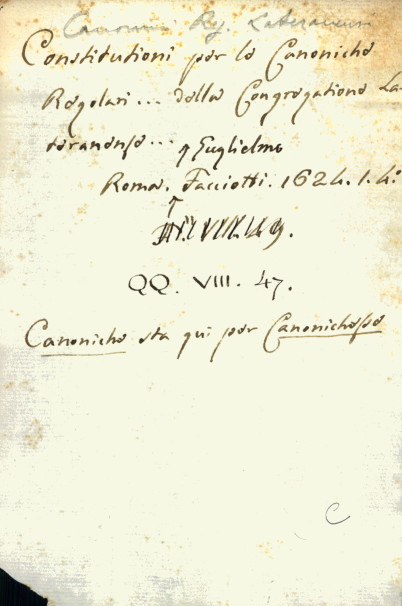 Canonici Reg. Lateranens
Constitutioni per le Canoniche
Regolari ... della Congregatione La-
teranense ... Guglielmo
Roma. Facciotti. 1624. 1. 4º
QQ. VIII. 47.
Canoniche sta qui per Canonichesse
C